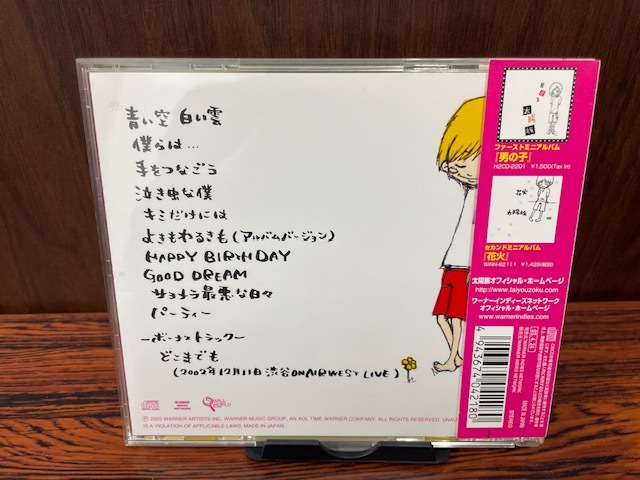 青い空 白い雲
僕らは…
手をつなごう
泣き虫な僕
キミだけには
よきもわるきも(アルバムバージョン)
HAPPY BIRTHDAY
GOOD DREAM
サヨナラ最悪な日々
パーティー
—ボーナストラック—
どこまでも
(2002年12月11日 渋谷ON AIR WEST LIVE)
℗©2003 WARNER ARTISTS INC. WARNER MUSIC GROUP, AN AOL TIME WARNER COMPANY. ALL RIGHTS RESERVED. UNAU
IS A VIOLATION OF APPLICABLE LAWS. MADE IN JAPAN.
男の子
太陽族
ファーストミニアルバム
『男の子』
H2CD-2201 ¥1,500(Tax in)
花火
太陽族
セカンドミニアルバム
『花火』
WINN-82111 ¥1,429(税抜)
太陽族オフィシャル・ホームページ
http://www.taiyouzoku.com/
ワーナーインディーズネットワーク
オフィシャル・ホームページ
www.warnerindies.com/
4 943674 042180
STEREO
MADE IN JAPAN